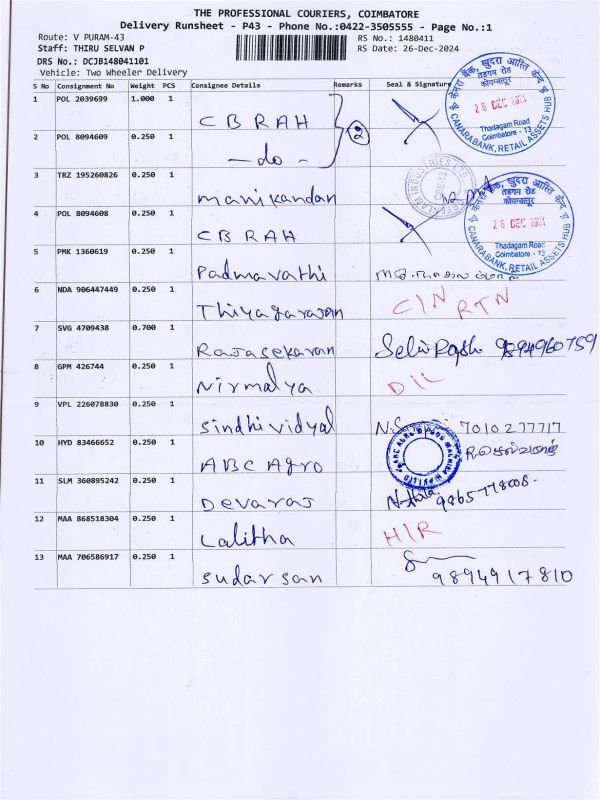 THE PROFESSIONAL COURIERS, COIMBATORE
Delivery Runsheet - P43 - Phone No.:0422-3505555 - Page No.:1
Route: V PURAM-43
RS No.: 1480411
Staff: THIRU SELVAN P
RS Date: 26-Dec-2024
DRS No.: DCJB148041101
Vehicle: Two Wheeler Delivery
S No Consignment No Weight PCS Consignee Details Remarks Seal & Signature
1 POL 2039699 1.000 1 CBRAH 2
2 POL 8094609 0.250 1 - do -
3 TRZ 195260826 0.250 1 manikandan
4 POL 8094608 0.250 1 CBRAH
5 PMK 1360619 0.250 1 Padmavathi
6 NDA 906447449 0.250 1 Thiyagarajan CIN RTN
7 SVG 4709438 0.700 1 Rajasekaran 9894960759
8 GPM 426744 0.250 1 Nirmalya DIL
9 VPL 226078830 0.250 1 Sindhividyal 7010277717
10 HYD 83466652 0.250 1 ABC Agro
11 SLM 360895242 0.250 1 Devaraj 9865778008
12 MAA 868518304 0.250 1 Lalitha HIR
13 MAA 706586917 0.250 1 Sudarsan 9894917810
केनरा बैंक, खुदरा आस्ति केन्द्र
तडागम रोड
कोयम्बत्तूर
26 DEC 2024
Thadagam Road
Coimbatore - 13
CANARA BANK, RETAIL ASSETS HUB
केनरा बैंक, खुदरा आस्ति केन्द्र
तडागम रोड
कोयम्बत्तूर
26 DEC 2024
Thadagam Road
Coimbatore - 13
CANARA BANK, RETAIL ASSETS HUB